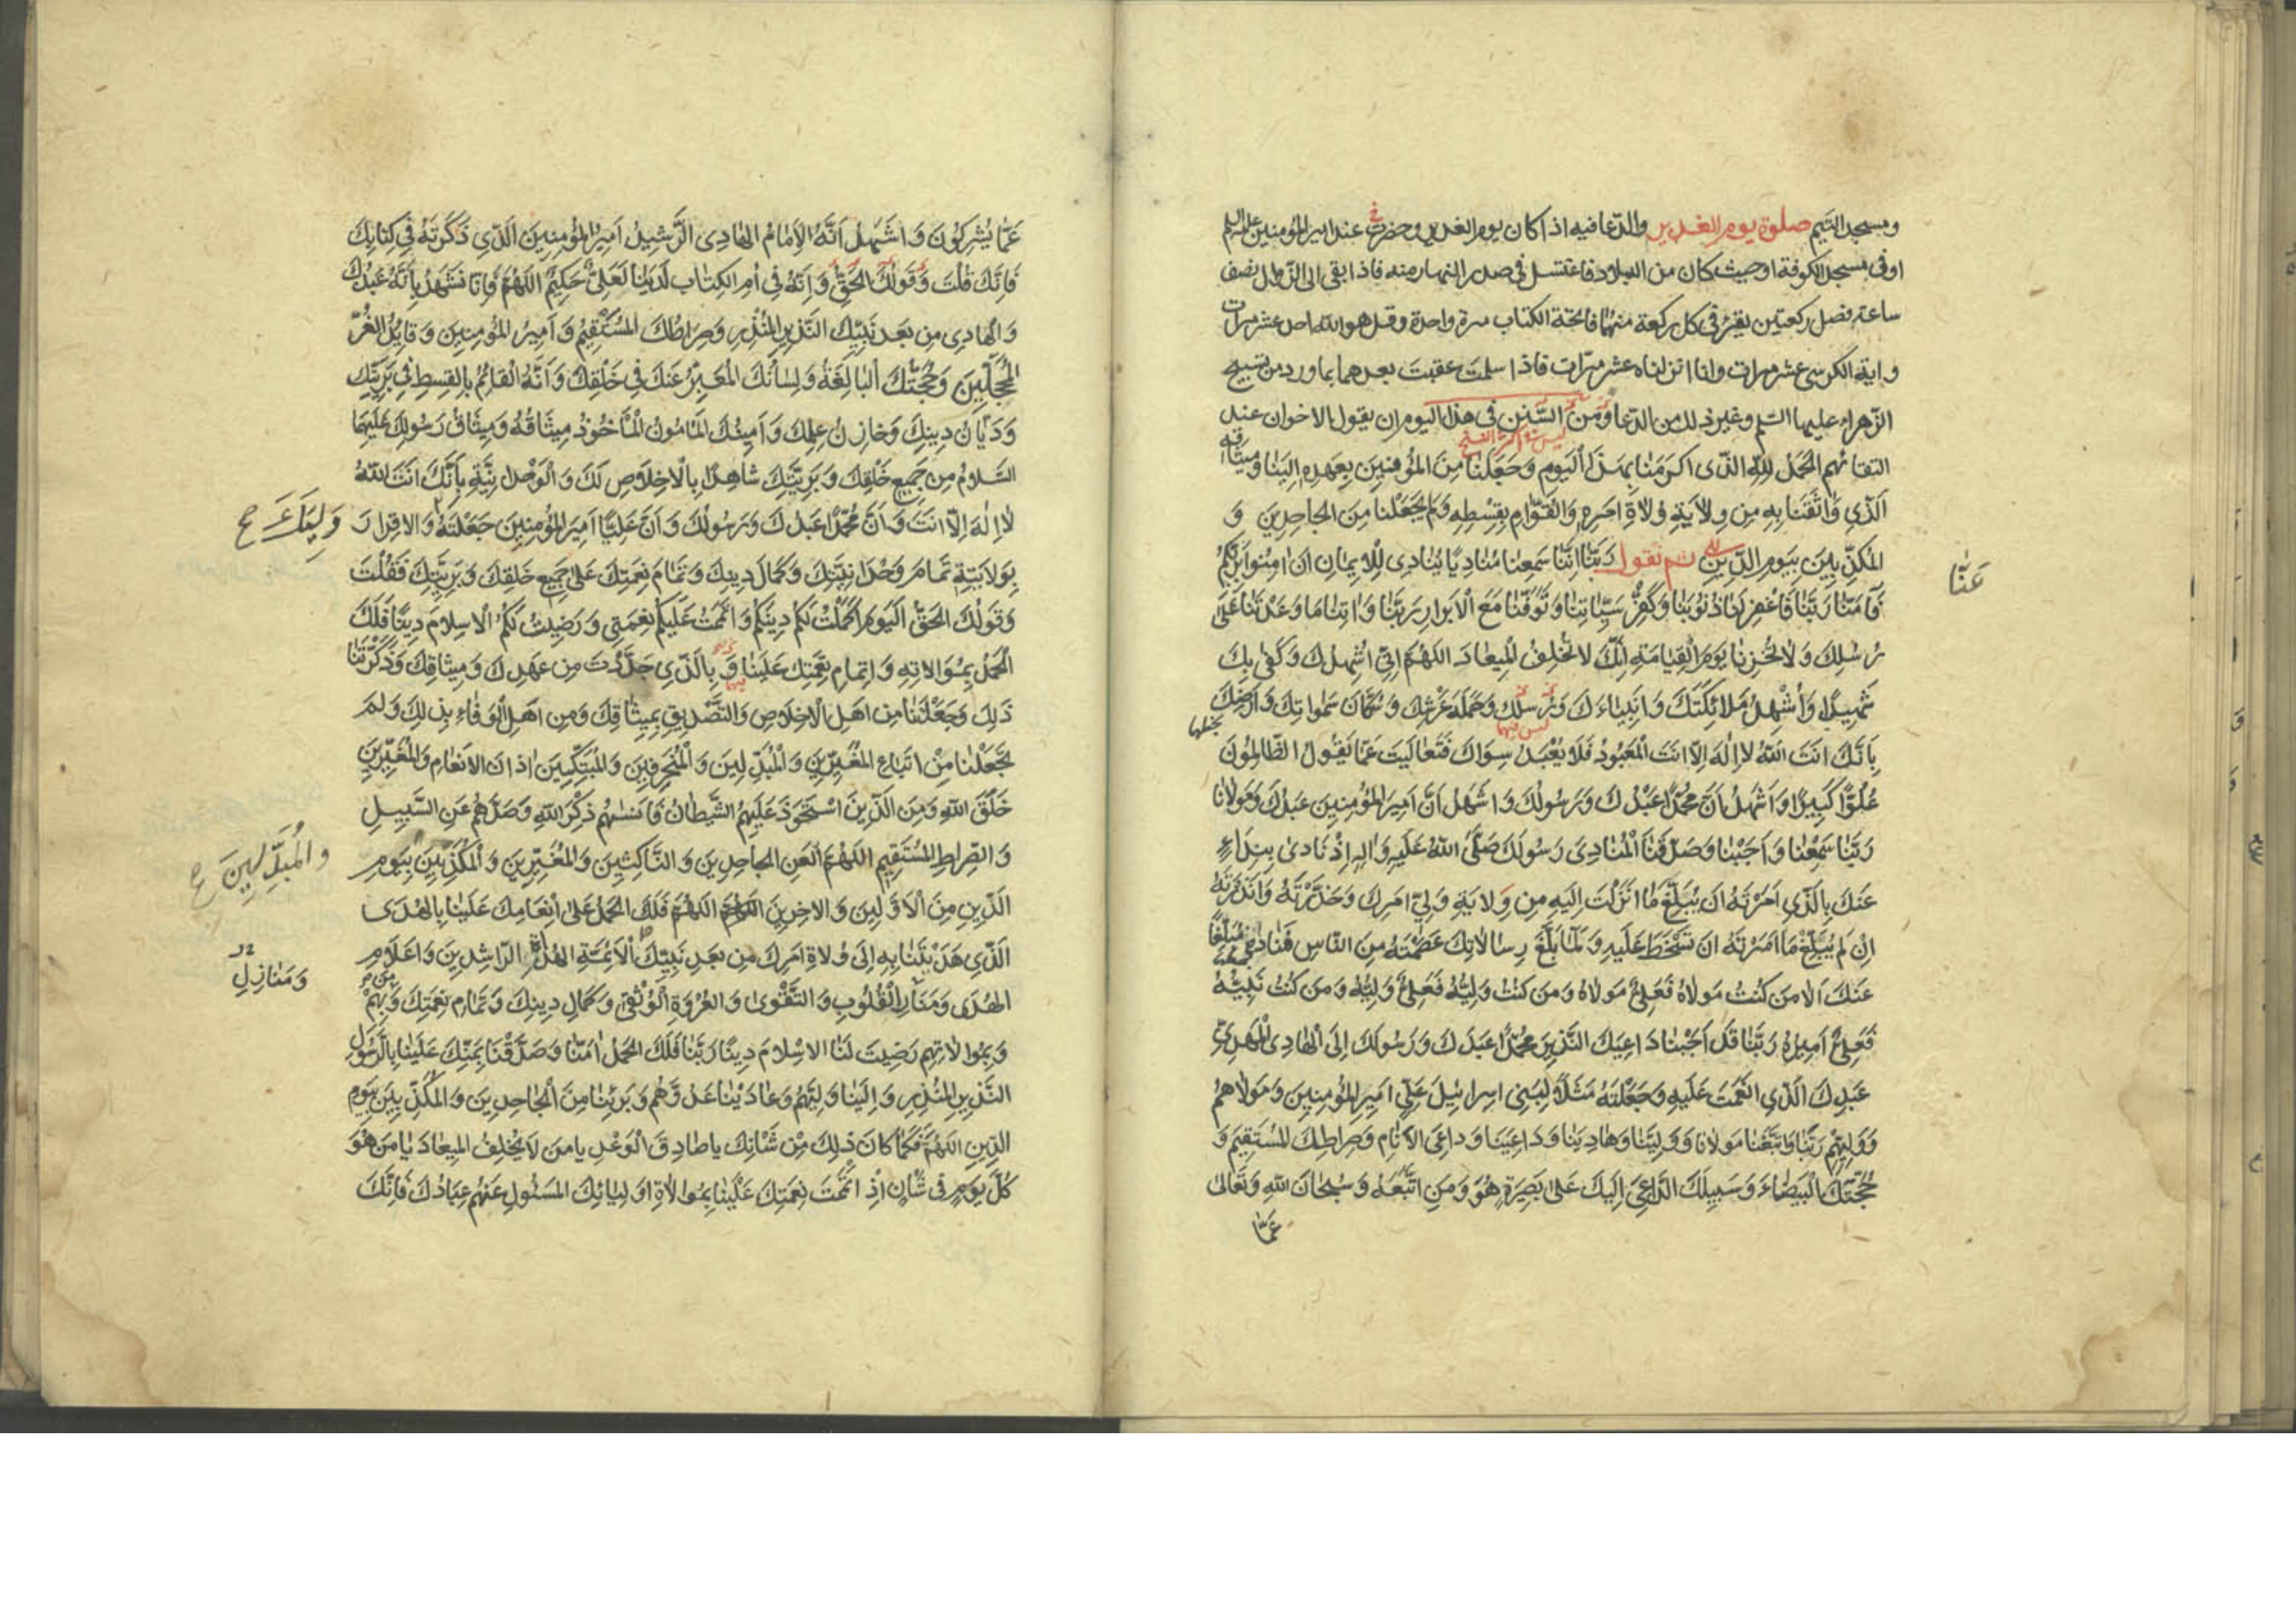 ومسجد التيم صلوة يوم الغدير والدعا فيه اذا كان يوم الغدير وحضرت عند امير المؤمنين عليه السلم
في
او فى مسجد الكوفة او حيث كان من البلاد فاغتسل فى صدر النهار منه فاذا بقى الى الزوال نصف
ساعة فصل ركعتين يقرء فى كل ركعة منهما فاتحة الكتاب مرة واحدة وقل هو الله احد عشر مرات
واية الكرسى عشر مرات وانا انزلناه عشر مرات فاذا سلمت عقبت بعدهما بما ورد من تسبيح
الزهراء عليها السلم وغير ذلك من الدعا ومن السنن فى هذا اليوم ان يقول الاخوان عند
التقائهم الحَمدُ لِلّهِ الَّذى اكرَمَنا بِهذَا اليَومِ وَجَعَلَنا مِنَ المؤمِنينَ بِعَهدِهِ اِلَينا وَميثاقِهِ
الَّذي واثَقَنا بِهِ مِن وِلايَةِ وُلاةِ امرِهِ وَالقُوّامِ بِقِسطِهِ وَلَم يَجعَلنا مِنَ الجاحِدينَ وَ
المُكَذِّبينَ بِيَومِ الدّينِ ثم تقول رَبَّنا اِنَّنا سَمِعنا مُنادِيًا يُنادى لِلايمانِ ان امِنُوا بِرَبِّكُم
عَنّا
فَآمَنّا رَبَّنا فَاغفِر لَنا ذُنُوبَنا وَكَفِّر سَيِّئاتِنا وَتَوَفَّنا مَعَ الاَبرارِ رَبَّنا وَاتِنا ما وَعَدتَنا عَلى
رُسُلِكَ وَلا تُخزِنا يَومَ القِيامَةِ اِنَّكَ لا تُخلِفُ المِيعادَ اللهُمَّ اِنّى اُشهِدُكَ وَكَفى بِكَ
شَهيدًا وَاُشهِدُ مَلائِكَتَكَ وَانبِياءَكَ وَرُسُلَكَ وَحَمَلَةَ عَرشِكَ وَسُكّانَ سَمواتِكَ وَارَضِكَ
بِاَنَّكَ انتَ اللهُ لا اِلهَ اِلاّ انتَ المَعبُودُ فَلا يُعبَدُ سِواكَ فَتَعالَيتَ عَمّا يَقُولُ الظّالِمُونَ
عُلُوًّا كَبيرًا وَاَشهَدُ اَنَّ مُحَمَّدًا عَبدُكَ وَرَسُولُكَ وَاشهَدُ اَنَّ اَميرَ المُؤمِنينَ عَبدُكَ وَمَولانا
رَبَّنا سَمِعنا وَاَجَبنا وَصَدَّقنَا المُنادِىَ رَسُولَكَ صَلَّى اللهُ عَلَيهِ وَالِهِ اِذ نادى بِنِداءٍ
عَنكَ بِالَّذى اَمَرتَهُ ان يُبَلِّغَ ما انزَلتَ اِلَيهِ مِن وِلايَةِ وَلِىِّ امرِكَ وَحَذَّرتَهُ وَانذَرتَهُ
اِن لَم يُبَلِّغ ما امَرتَهُ ان تَسخَطَ عَلَيهِ وَلَمّا بَلَّغَ رِسالاتِكَ عَصَمتَهُ مِنَ النّاسِ فَنادى مُبَلِّغًا
عَنكَ اَلا مَن كُنتُ مَولاهُ فَعَلِىٌّ مَولاهُ وَمَن كُنتُ وَلِيَّهُ فَعَلِىٌّ وَلِيُّهُ وَمَن كُنتُ نَبِيَّهُ
فَعَلِىٌّ اَميرُهُ رَبَّنا قَد اَجَبنا داعِيَكَ النَّذيرَ مُحَمَّدًا عَبدَكَ وَرَسُولَكَ اِلَى الهادِى المَهدِىِّ
عَبدِكَ الَّذى انعَمتَ عَلَيهِ وَجَعَلتَهُ مَثَلاً لِبَنى اسرائيلَ عَلِىٍّ اميرِ المُؤمِنينَ وَمَولاهُم
وَوَلِيِّهِم رَبَّنا وَاتَّبَعنا مَولانا وَوَلِيَّنا وَهادِيَنا وَداعِيَنا وَداعِىَ الاَنامِ وَصِراطِكَ المُستَقيمَ وَ
حُجَّتَكَ البَيضاءَ وَسَبيلَكَ الدّاعِىَ اِلَيكَ عَلى بَصيرَةٍ هُوَ وَمَنِ اتَّبَعَهُ وَسُبحانَ اللهِ وَتَعالى
عَمّا
عَمّا يُشرِكُونَ وَاشهَدُ اَنَّهُ الاِمامُ الهادِى الرَّشيدُ اَميرُ المُؤمِنينَ الَّذى ذَكَرتَهُ فى كِتابِكَ
فَاِنَّكَ قُلتَ وَقَولُكَ الحَقُّ وَاِنَّهُ فى اُمِّ الكِتابِ لَدَينا لَعَلِىٌّ حَكيمٌ اللهُمَّ فَاِنّا نَشهَدُ بِاَنَّهُ عَبدُكَ
وَالهادِى مِن بَعدِ نَبِيِّكَ النَّذيرِ المُنذِرِ وَصِراطُكَ المُستَقيمُ وَاَميرُ المُؤمِنينَ وَقائِدُ الغُرِّ
المُحَجَّلينَ وَحُجَّتُكَ البالِغَةُ وَلِسانُكَ المُعَبِّرُ عَنكَ فى خَلقِكَ وَاَنَّهُ القائِمُ بِالقِسطِ فى بَرِيَّتِكَ
وَدَيّانُ دينِكَ وَخازِنُ عِلمِكَ وَاَمينُكَ المَأمُونُ المَأخُوذُ ميثاقُهُ وَميثاقُ رَسُولِكَ عَلَيهِمَا
السَّلامُ مِن جَميعِ خَلقِكَ وَبَرِيَّتِكَ شاهِدًا بِالاِخلاصِ لَكَ وَالوَحدانِيَّةِ بِاَنَّكَ انتَ اللهُ
لا اِلهَ اِلاّ انتَ وَاَنَّ مُحَمَّدًا عَبدُكَ وَرَسُولُكَ وَاَنَّ عَلِيًّا اَميرَ المُؤمِنينَ جَعَلتَهُ وَالاِقرارَ
بِوَلايَتِهِ تَمامَ وَحدانِيَّتِكَ وَكَمالَ دينِكَ وَتَمامَ نِعمَتِكَ عَلى جَميعِ خَلقِكَ وَبَرِيَّتِكَ فَقُلتَ
وَقَولُكَ الحَقُّ اَليَومَ اَكمَلتُ لَكُم دينَكُم وَاَتمَمتُ عَلَيكُم نِعمَتى وَرَضيتُ لَكُمُ الاِسلامَ دينًا فَلَكَ
الحَمدُ بِمُوالاتِهِ وَاِتمامِ نِعمَتِكَ عَلَينا وَبِالَّذى جَدَّدتَ مِن عَهدِكَ وَميثاقِكَ وَذَكَّرتَنا
ذلِكَ وَجَعَلتَنا مِن اهلِ الاِخلاصِ وَالتَّصديقِ بِميثاقِكَ وَمِن اهلِ الوَفاءِ بِذلِكَ وَلَم
تَجعَلنا مِن اَتباعِ المُغَيِّرينَ وَالمُبَدِّلينَ وَالمُنحَرِفينَ وَالمُبَتِّكينَ اذانَ الاَنعامِ وَالمُغَيِّرينَ
خَلقَ اللهِ وَمِنَ الَّذينَ استَحوَذَ عَلَيهِمُ الشَّيطانُ فَاَنساهُم ذِكرَ اللهِ وَصَدَّهُم عَنِ السَّبيلِ
وَالصِّراطِ المُستَقيمِ اللهُمَّ العَنِ الجاحِدينَ وَالنّاكِثينَ وَالمُغَيِّرينَ وَالمُكَذِّبينَ بِيَومِ
والمُبَدِّلينَ
الدّينِ مِنَ الاَوَّلينَ وَالاخِرينَ اللهُمَّ فَلَكَ الحَمدُ عَلى اِنعامِكَ عَلَينا بِالهُدَى
الَّذى هَدَيتَنا بِهِ اِلى وُلاةِ امرِكَ مِن بَعدِ نَبِيِّكَ الاَئِمَّةِ الهُداةِ الرّاشِدينَ وَاَعلامِ
وَمَنازِلِ
الهُدى وَمَنارِ القُلُوبِ وَالتَّقوى وَالعُروَةِ الوُثقى وَكَمالِ دينِكَ وَتَمامِ نِعمَتِكَ وَبِهِم
وَبِمُوالاتِهِم رَضيتَ لَنا الاِسلامَ دينًا رَبَّنا فَلَكَ الحَمدُ امَنّا وَصَدَّقنا بِمَنِّكَ عَلَينا بِالرَّسُولِ
النَّذيرِ المُنذِرِ وَالَينا وَلِيَّهُم وَعادَينا عَدُوَّهُم وَبَرِئنا مِنَ الجاحِدينَ وَالمُكَذِّبينَ بِيَومِ
الدّينِ اللهُمَّ فَكَما كانَ ذلِكَ مِن شَأنِكَ يا صادِقَ الوَعدِ يا مَن لا يُخلِفُ الميعادَ يا مَن هُوَ
كُلَّ يَومٍ فى شَأنٍ اِذ اتمَمتَ نِعمَتَكَ عَلَينا بِمُوالاةِ اَولِيائِكَ المَسئُولِ عَنهُم عِبادُكَ فَاِنَّكَ